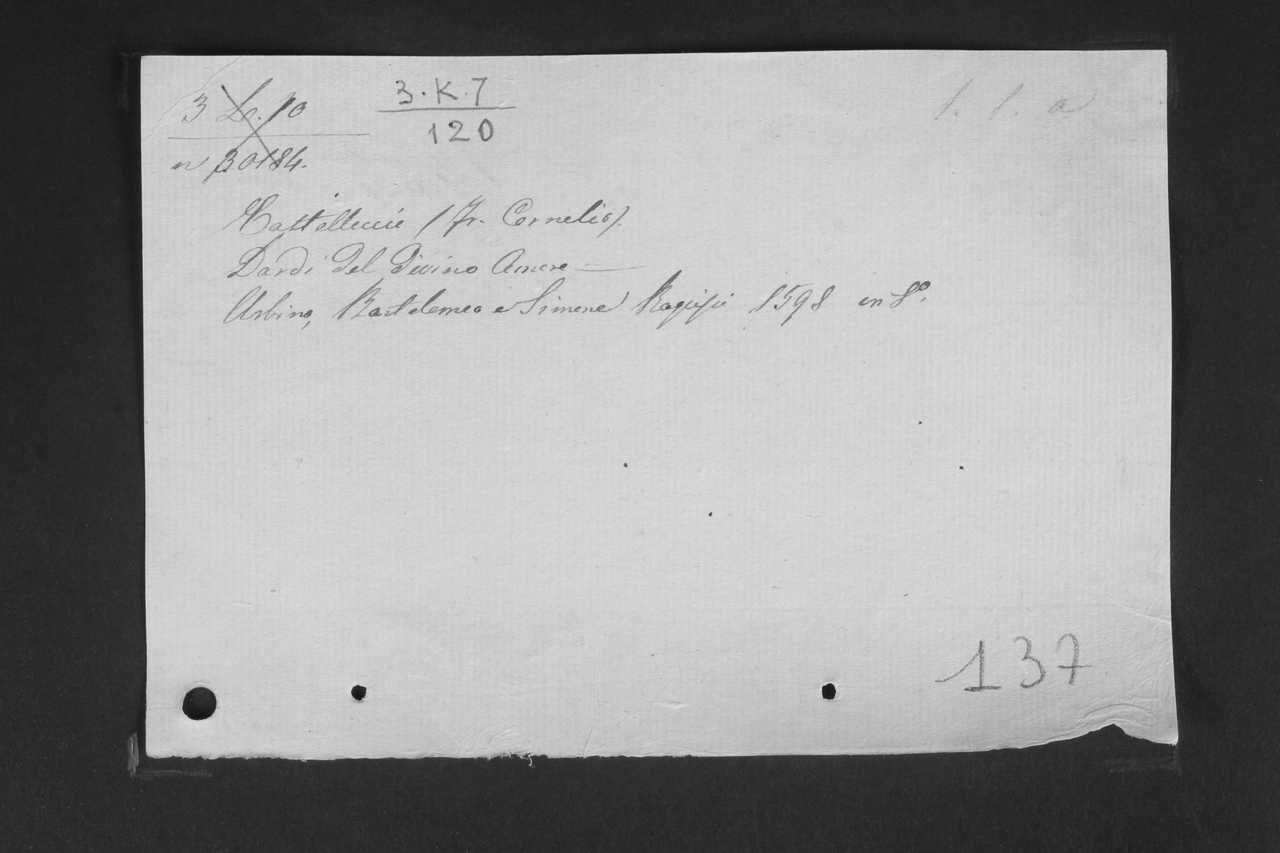 3 L. 10
3.K.7
1. 1. a
n 30184.
120
Castelluccie (Fr. Cornelio).
Dardi del Divino Amore —
Urbino, Bartolomeo e Simone Ragusii 1598 in 8º.
137